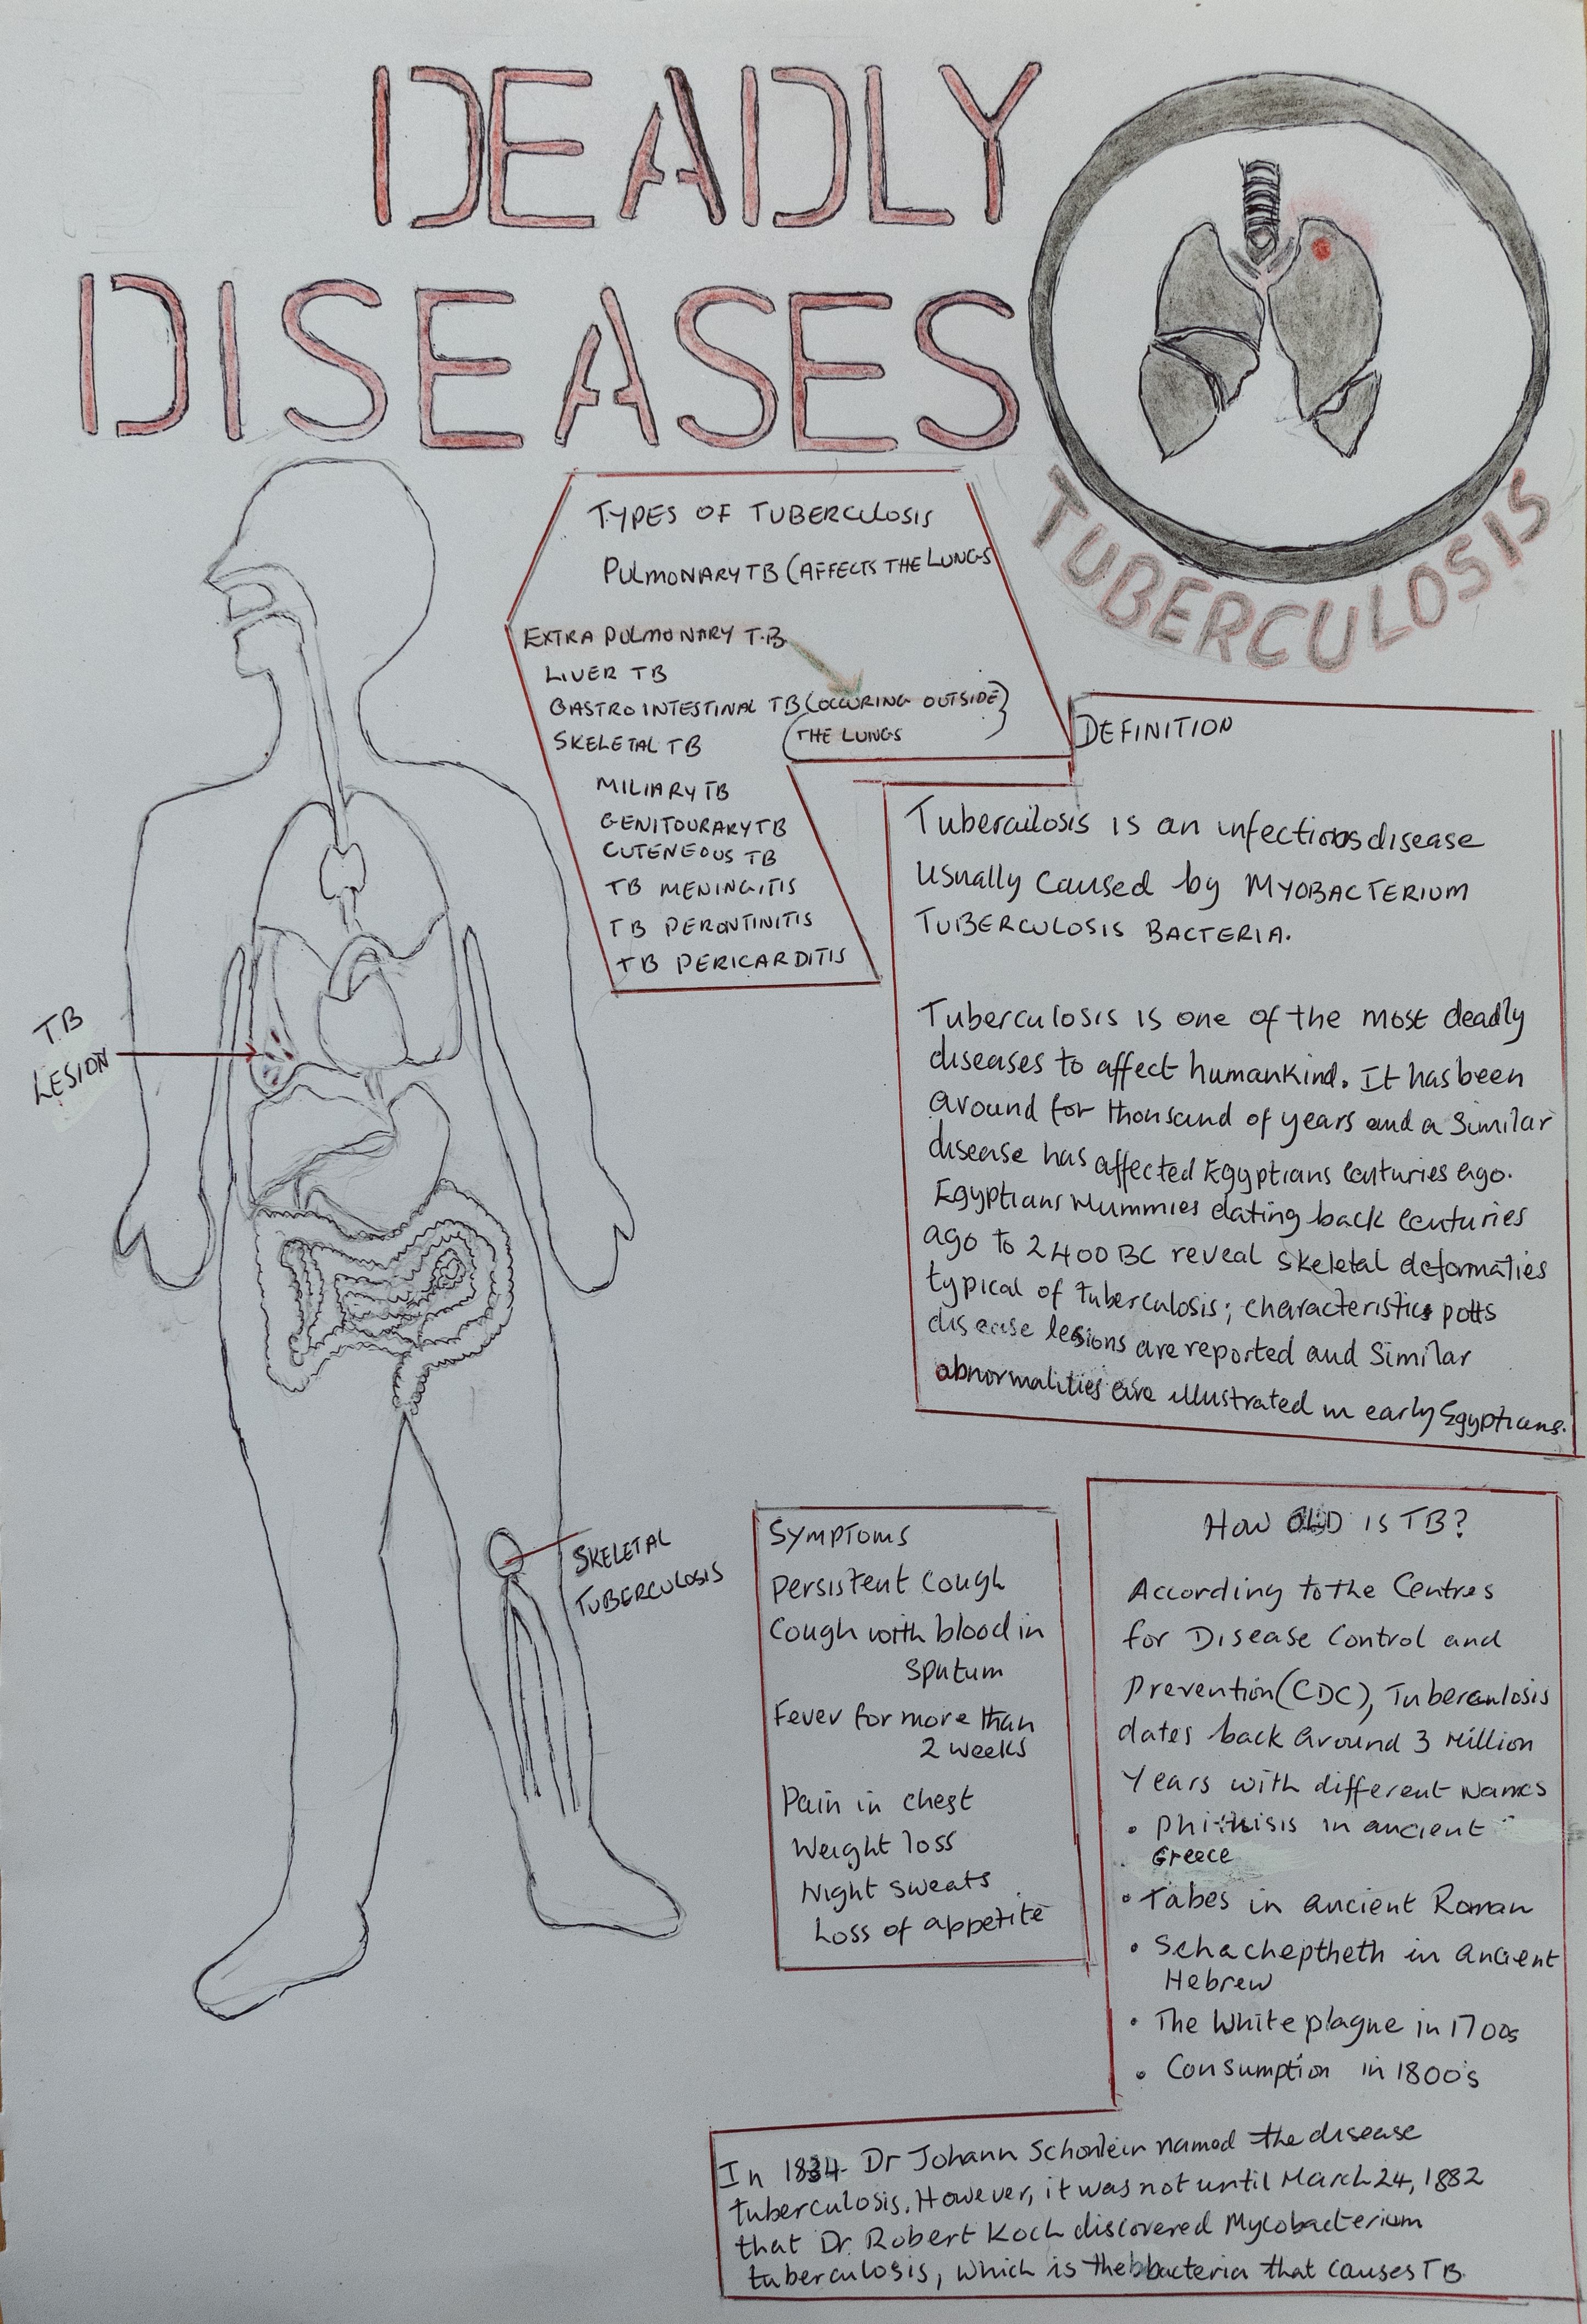 DEADLY
DISEASES
TUBERCULOSIS
TYPES OF TUBERCULOSIS
PULMONARY TB (AFFECTS THE LUNGS
EXTRA PULMONARY T.B
LIVER TB
GASTROINTESTINAL TB (OCCURING OUTSIDE)
SKELETAL TB (THE LUNGS
MILIARY TB
GENITOURARY TB
CUTENEOUS TB
TB MENINGITIS
TB PERONTINITIS
TB PERICARDITIS
DEFINITION
Tubercilosis is an infectious disease
usually caused by MYOBACTERIUM
TUBERCULOSIS BACTERIA.
Tuberculosis is one of the most deadly
diseases to affect humankind. It has been
around for thousand of years and a similar
disease has affected Egyptians centuries ago.
Egyptians Mummies dating back centuries
ago to 2400 BC reveal skeletal deformaties
typical of tuberculosis; characteristics potts
disease lesions are reported and similar
abnormalities are illustrated in early Egyptians.
T.B
LESION
SKELETAL
TUBERCULOSIS
SYMPTOMS
Persistent cough
Cough with blood in
sputum
Fever for more than
2 weeks
Pain in chest
Weight loss
Night sweats
Loss of appetite
HOW OLD IS TB?
According to the Centres
for Disease Control and
Prevention (CDC), Tuberculosis
dates back around 3 Million
Years with different Names
• Phithisis in ancient
Greece
• Tabes in ancient Roman
• Schacheptheth in ancient
Hebrew
• The White plague in 1700s
• Consumption in 1800's
In 1834 Dr Johann Schonlein named the disease
tuberculosis. However, it was not until March 24, 1882
that Dr. Robert Koch discovered Mycobacterium
tuberculosis, which is the bacteria that causes TB.